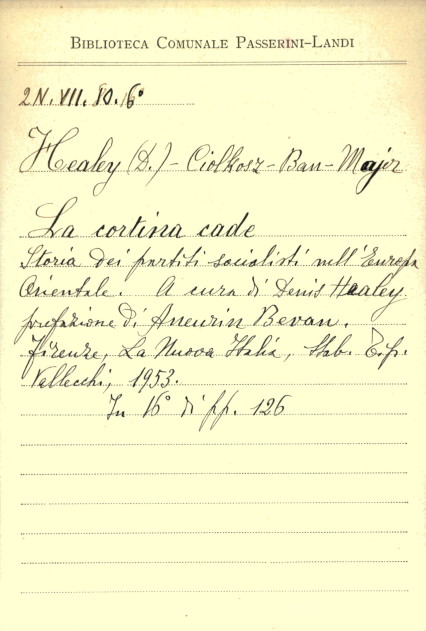 BIBLIOTECA COMUNALE PASSERINI-LANDI
2N.VII.80.16°
Healey (D.) - Ciolkosz - Ban - Majer
La cortina cade
Storia dei partiti socialisti nell'Europa
Orientale. A cura di Denis Healey.
prefazione di Aneurin Bevan.
Firenze, La Nuova Italia, Stab. Tip.
Vallecchi, 1953.
In 16° di pp. 126